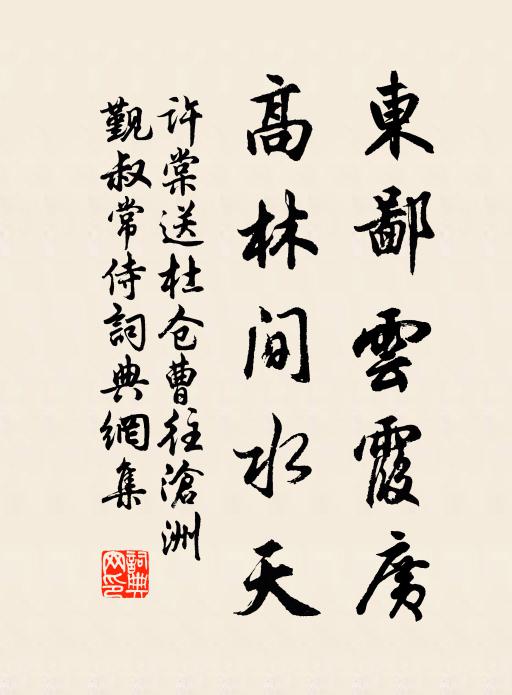 東鄙雲霞廣
高林間水天
許棠送杜仓曹往滄洲
觐叔常侍詞典網集
詞典网印